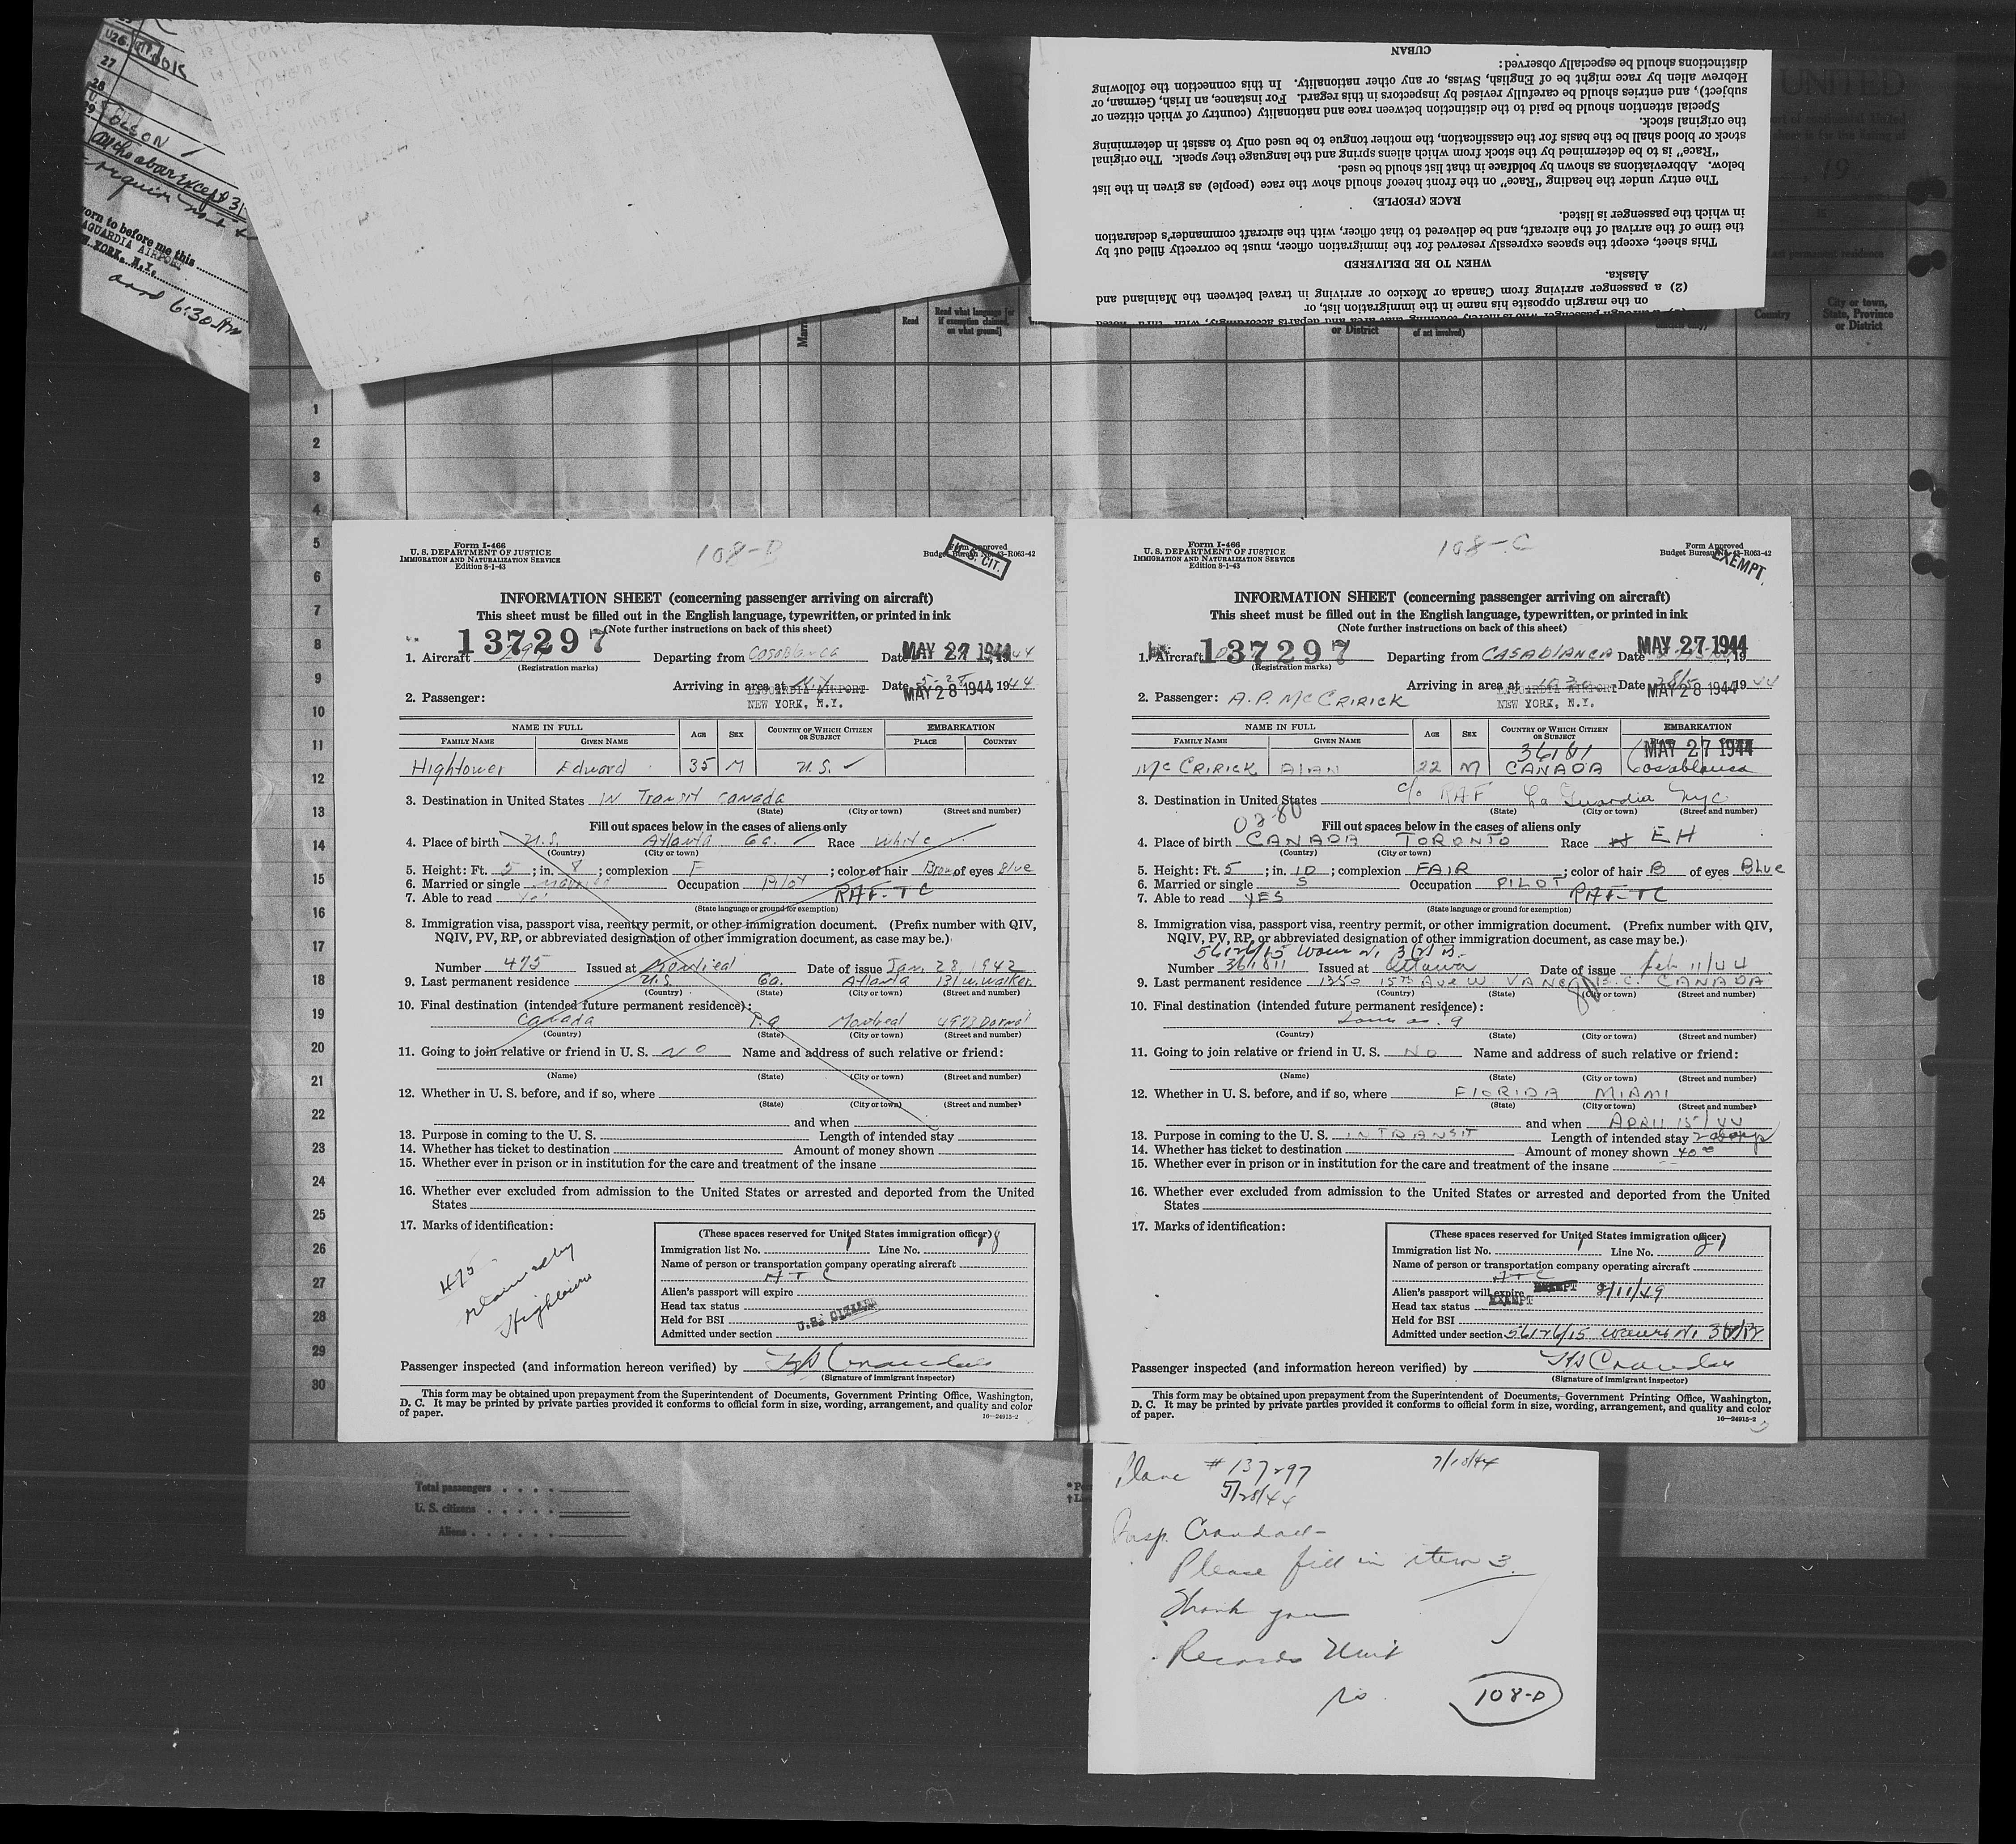 U26
27
28
OLSON
All the above except 31
require
orn to before me this
AGUARDIA AIRPORT
YORK, N.Y.
6:30 PM
CUBAN
distinctions should be especially observed:
Hebrew alien by race might be of English, Swiss, or any other nationality. In this connection the following
subject), and entries should be carefully revised by inspectors in this regard. For instance, an Irish, German, or
Special attention should be paid to the distinction between race and nationality (country of which citizen or
the original stock.
stock or blood shall be the basis for the classification, the mother tongue to be used only to assist in determining
"Race" is to be determined by the stock from which aliens spring and the language they speak. The original
below. Abbreviations as shown by boldface in that list should be used.
The entry under the heading "Race" on the front hereof should show the race (people) as given in the list
RACE (PEOPLE)
in which the passenger is listed.
the time of the arrival of the aircraft, and be delivered to that officer, with the aircraft commander's declaration
This sheet, except the spaces expressly reserved for the immigration officer, must be correctly filled out by
WHEN TO BE DELIVERED
Alaska.
(2) a passenger arriving from Canada or Mexico or arriving in travel between the Mainland and
on the margin opposite his name in the immigration list, or
UNITED
19
Last permanent residence
Read
Read what language [or
if exemption claimed,
on what ground]
or District
of act involved)
Country
City or town,
State, Province
or District
1
2
3
4
5
6
7
8
9
10
11
12
13
14
15
16
17
18
19
20
21
22
23
24
25
26
27
28
29
30
Form I-466
U. S. DEPARTMENT OF JUSTICE
IMMIGRATION AND NATURALIZATION SERVICE
Edition 8-1-43
108-B
Form Approved
Budget Bureau No. 43-R063-42
U.S. CIT.
INFORMATION SHEET (concerning passenger arriving on aircraft)
This sheet must be filled out in the English language, typewritten, or printed in ink
(Note further instructions on back of this sheet)
137297
1. Aircraft 297 Departing from Casablanca Date MAY 27 1944, 1944
(Registration marks)
Arriving in area at N.Y. Date 5-28 1944
LAGUARDIA AIRPORT MAY 28 1944
2. Passenger: NEW YORK, N.Y.
NAME IN FULL AGE SEX COUNTRY OF WHICH CITIZEN OR SUBJECT EMBARKATION
FAMILY NAME GIVEN NAME PLACE COUNTRY
Hightower Edward 35 M U.S. ✓
3. Destination in United States IN Transit Canada
(State) (City or town) (Street and number)
Fill out spaces below in the cases of aliens only
4. Place of birth U.S. Atlanta Ga. Race White
(Country) (City or town)
5. Height: Ft. 5 ; in. 8 ; complexion F ; color of hair Brown of eyes Blue
6. Married or single Married Occupation Pilot RAF-TC
7. Able to read Yes
(State language or ground for exemption)
8. Immigration visa, passport visa, reentry permit, or other immigration document. (Prefix number with QIV,
NQIV, PV, RP, or abbreviated designation of other immigration document, as case may be.)
Number 475 Issued at Montreal Date of issue Jan. 28, 1942
9. Last permanent residence U.S. Ga. Atlanta 131 W. Walker
(Country) (State) (City or town) (Street and number)
10. Final destination (intended future permanent residence):
Canada P.Q. Montreal
(Country) (State) (City or town) (Street and number)
11. Going to join relative or friend in U. S. NO Name and address of such relative or friend:
(Name) (State) (City or town) (Street and number)
12. Whether in U. S. before, and if so, where
(State) (City or town) (Street and number)
and when
13. Purpose in coming to the U. S. Length of intended stay
14. Whether has ticket to destination Amount of money shown
15. Whether ever in prison or in institution for the care and treatment of the insane
16. Whether ever excluded from admission to the United States or arrested and deported from the United
States
17. Marks of identification:
475
Hightower
(These spaces reserved for United States immigration officer)
Immigration list No. 1 Line No. 8
Name of person or transportation company operating aircraft
ATC
Alien's passport will expire
Head tax status
Held for BSI U.S. CITIZEN
Admitted under section
Passenger inspected (and information hereon verified) by HS Crandall
(Signature of immigrant inspector)
This form may be obtained upon prepayment from the Superintendent of Documents, Government Printing Office, Washington,
D. C. It may be printed by private parties provided it conforms to official form in size, wording, arrangement, and quality and color
of paper. 16—24915-2
Form I-466
U. S. DEPARTMENT OF JUSTICE
IMMIGRATION AND NATURALIZATION SERVICE
Edition 8-1-43
108-C
Form Approved
Budget Bureau No. 43-R063-42
EXEMPT
INFORMATION SHEET (concerning passenger arriving on aircraft)
This sheet must be filled out in the English language, typewritten, or printed in ink
(Note further instructions on back of this sheet)
137297
1. Aircraft Departing from CASABLANCA Date MAY 27 1944, 19
(Registration marks)
Arriving in area at 1030 Date 28/5 1944
LAGUARDIA AIRPORT MAY 28 1944
2. Passenger: A.P. McCRIRICK NEW YORK, N.Y.
NAME IN FULL AGE SEX COUNTRY OF WHICH CITIZEN OR SUBJECT EMBARKATION
FAMILY NAME GIVEN NAME
36181 MAY 27 1944
McCRIRICK AlAN 22 M CANADA Casablanca
3. Destination in United States c/o RAF La Guardia NYC
(State) (City or town) (Street and number)
0280
Fill out spaces below in the cases of aliens only
4. Place of birth CANADA TORONTO Race EH
(Country) (City or town)
5. Height: Ft. 5 ; in. 10 ; complexion FAIR ; color of hair B of eyes BLUE
6. Married or single S Occupation PILOT RAF-TC
7. Able to read YES
(State language or ground for exemption)
8. Immigration visa, passport visa, reentry permit, or other immigration document. (Prefix number with QIV,
NQIV, PV, RP, or abbreviated designation of other immigration document, as case may be.)
56176/15
Number Issued at Ottawa Date of issue Feb 11/44
9. Last permanent residence 1350 15TH Ave W VANC B.C. CANADA
(Country) (State) (City or town) (Street and number)
10. Final destination (intended future permanent residence):
Same as 9
(Country) (State) (City or town) (Street and number)
11. Going to join relative or friend in U. S. NO Name and address of such relative or friend:
(Name) (State) (City or town) (Street and number)
12. Whether in U. S. before, and if so, where FlORIDA MIAMI
(State) (City or town) (Street and number)
and when APRIl 15/44
13. Purpose in coming to the U. S. IN TRANSIT Length of intended stay
14. Whether has ticket to destination Amount of money shown 40
15. Whether ever in prison or in institution for the care and treatment of the insane
16. Whether ever excluded from admission to the United States or arrested and deported from the United
States
17. Marks of identification:
(These spaces reserved for United States immigration officer)
Immigration list No. 1 Line No.
Name of person or transportation company operating aircraft
ATC
Alien's passport will expire EXEMPT 2/11/49
Head tax status EXEMPT
Held for BSI
Admitted under section 56176/15
Passenger inspected (and information hereon verified) by HS Crandall
(Signature of immigrant inspector)
This form may be obtained upon prepayment from the Superintendent of Documents, Government Printing Office, Washington,
D. C. It may be printed by private parties provided it conforms to official form in size, wording, arrangement, and quality and color
of paper. 16—24915-2
Total passengers
U. S. citizens
Aliens
Plane # 137297 7/10/44
5/28/44
Insp. Crandall-
Please fill in item 3.
Thank you
Records Unit
108-D